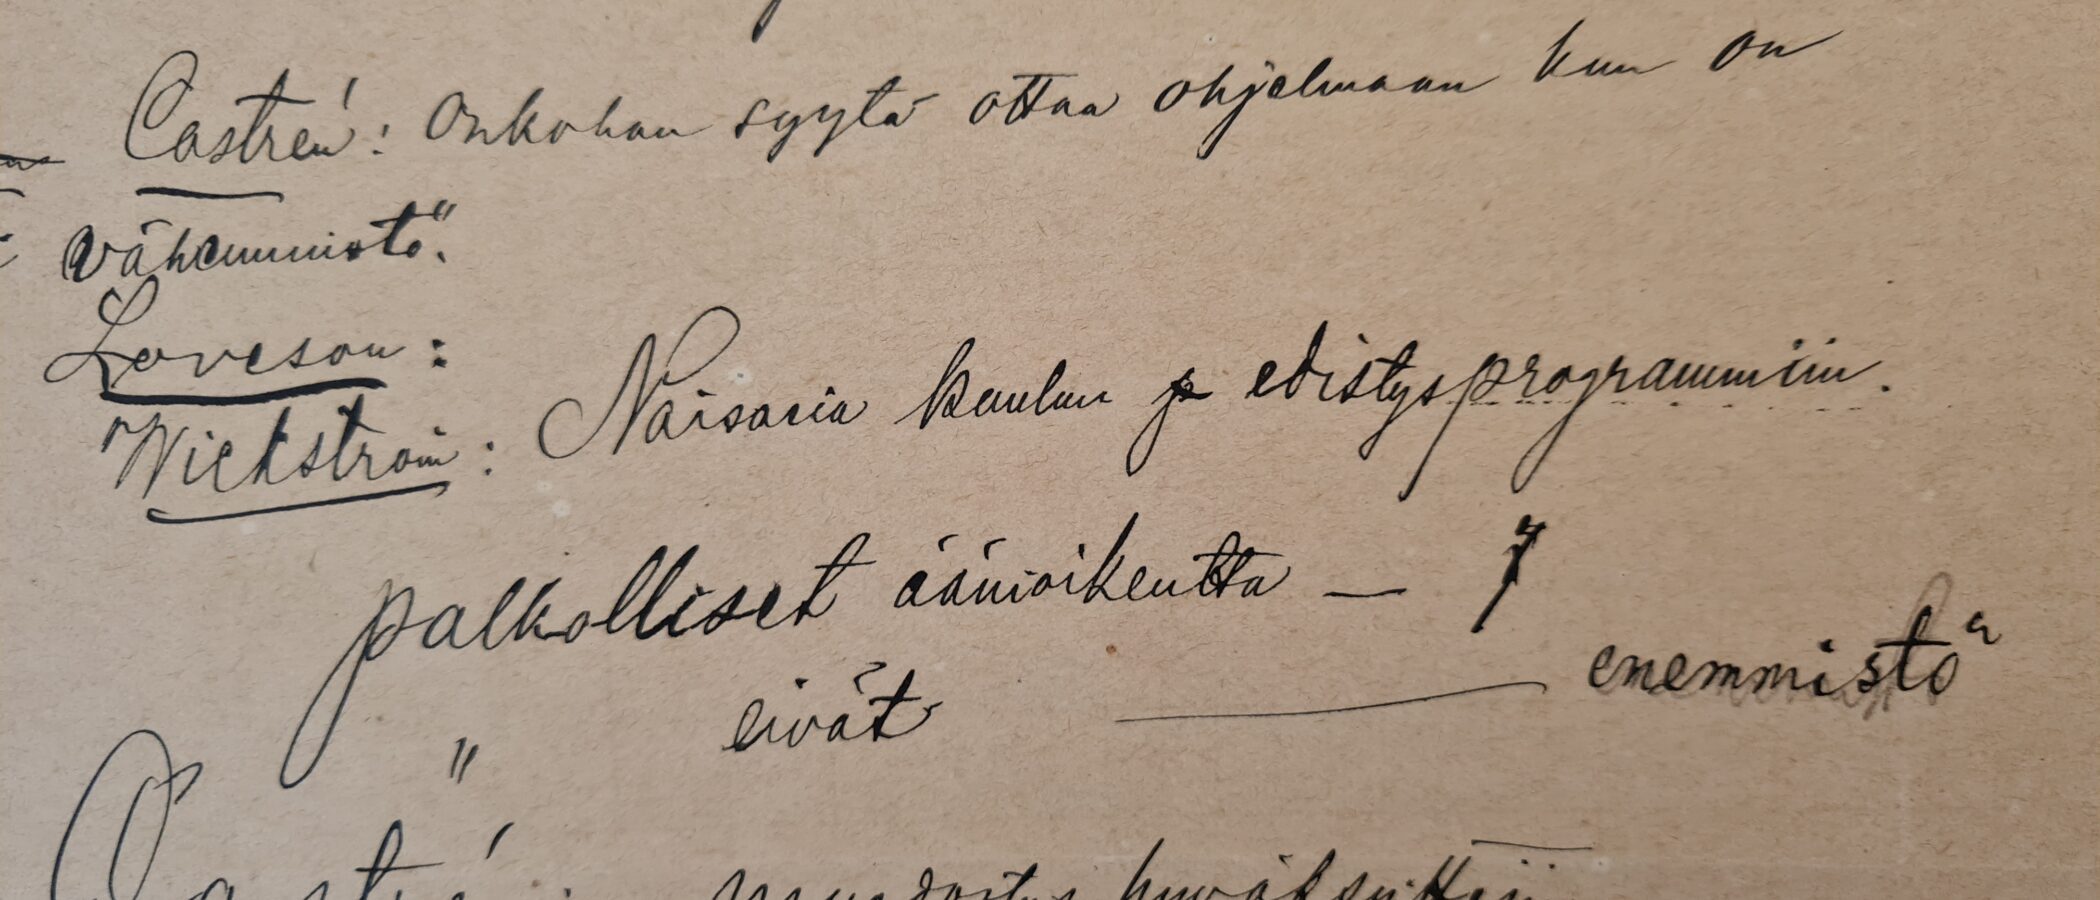 Castrén: Onkohan syytä ottaa ohjelmaan kun on
vähemmistö.
Loveson:
Wickström: Naisasia kuuluu edistysprogrammiin.
palkolliset äänioikeutta — 7
" eivät — enemmistö
Castrén: muodostus hyväksyttiin